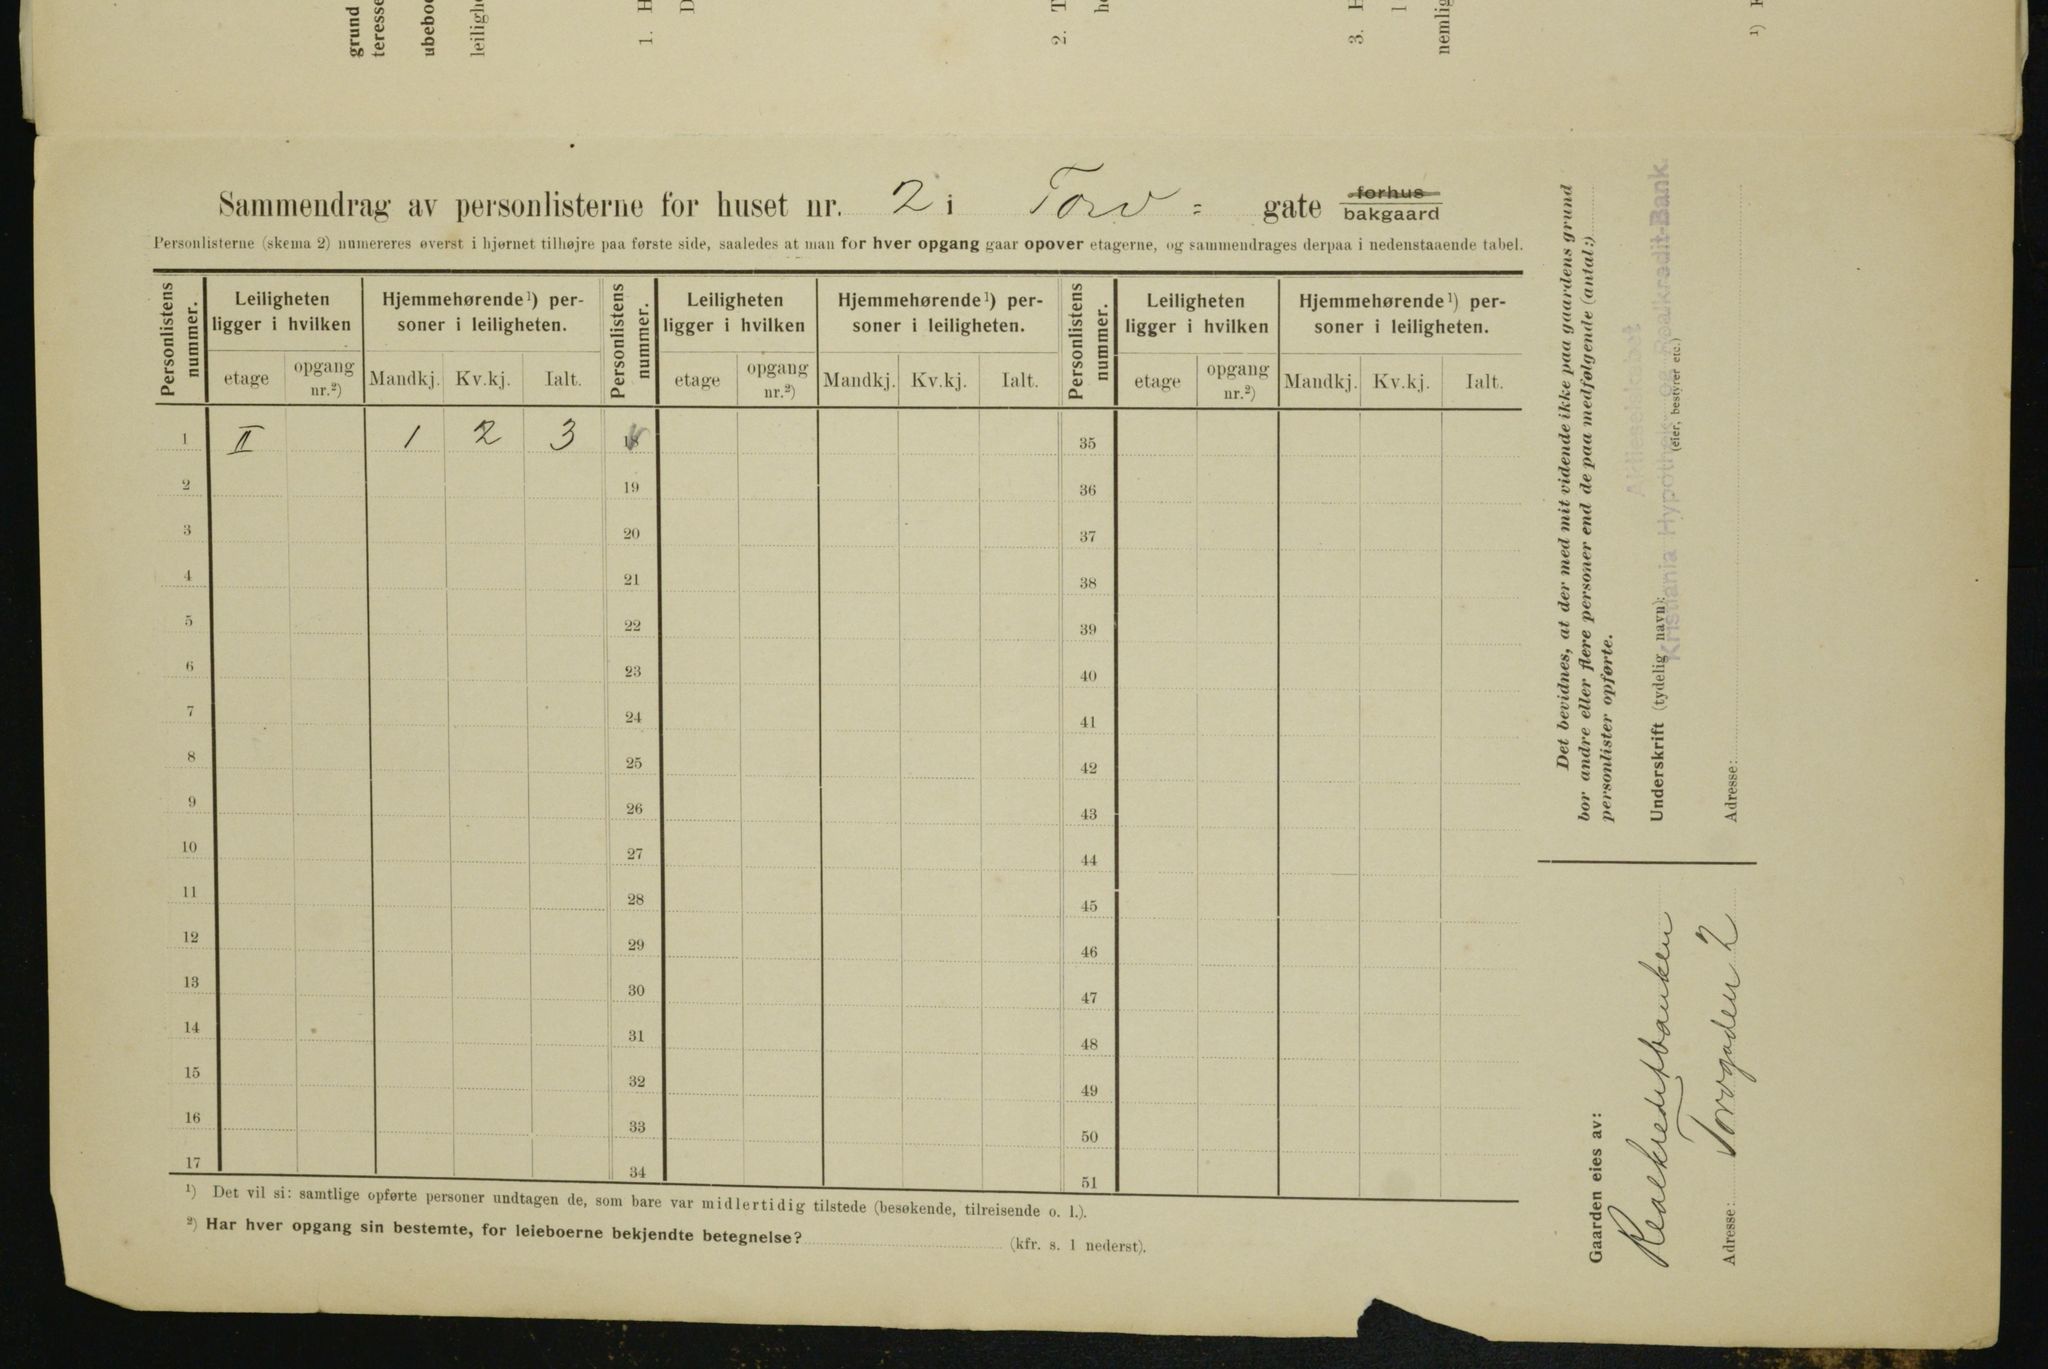 grund
teresse
leiligh
1. H
D
2. T
3. H
nemlig
Sammendrag av personlisterne for huset nr. 2 i Torv = gate forhus
bakgaard
Personlisterne (skema 2) numereres øverst i hjørnet tilhøjre paa første side, saaledes at man for hver opgang gaar opover etagerne, og sammendrages derpaa i nedenstaaende tabel.
Personlistens nummer. Leiligheten ligger i hvilken Hjemmehørende¹) personer i leiligheten. Personlistens nummer. Leiligheten ligger i hvilken Hjemmehørende¹) personer i leiligheten. Personlistens nummer. Leiligheten ligger i hvilken Hjemmehørende¹) personer i leiligheten.
etage opgang nr.²) Mandkj. Kv.kj. Ialt. etage opgang nr.²) Mandkj. Kv.kj. Ialt. etage opgang nr.²) Mandkj. Kv.kj. Ialt.
1 II 1 2 3 18 35
2 19 36
3 20 37
4 21 38
5 22 39
6 23 40
7 24 41
8 25 42
9 26 43
10 27 44
11 28 45
12 29 46
13 30 47
14 31 48
15 32 49
16 33 50
17 34 51
¹) Det vil si: samtlige opførte personer undtagen de, som bare var midlertidig tilstede (besøkende, tilreisende o. l.).
²) Har hver opgang sin bestemte, for leieboerne bekjendte betegnelse? (kfr. s. 1 nederst).
Det bevidnes, at der med mit vidende ikke paa gaardens grund
bor andre eller flere personer end de paa medfølgende (antal:)
personlister opførte.
Aktieselskabet
Underskrift (tydelig navn):
Kristiania Hypothek- og Realkredit-Bank.
(eier, bestyrer etc.)
Adresse:
Gaarden eies av:
Realkreditbanken
Adresse: Torvgaden 2